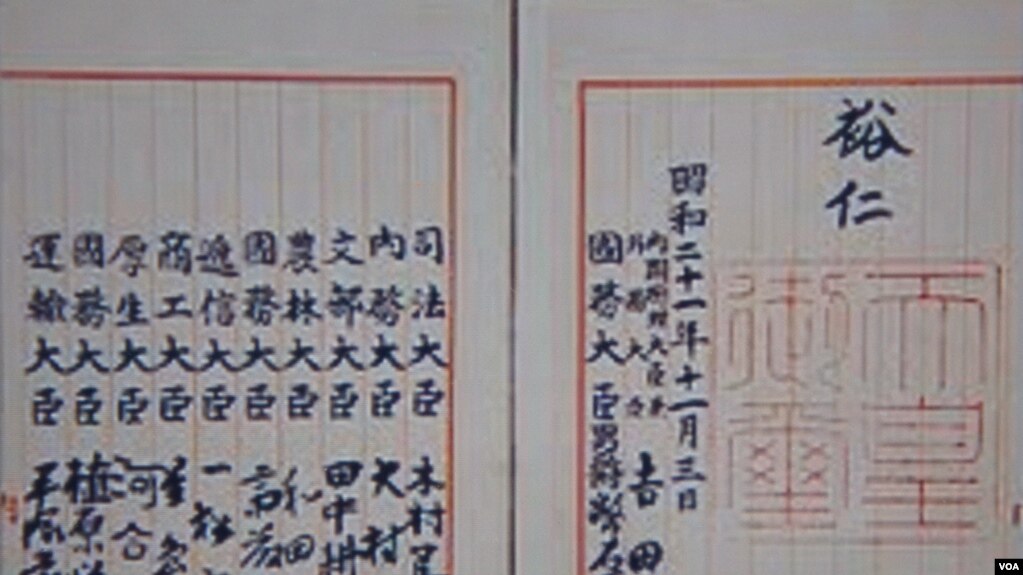 裕仁
天皇御璽
昭和二十一年十一月三日
内閣總理大臣兼
外務大臣
吉田
國務大臣男爵幣原
司法大臣木村
内務大臣大村
文部大臣田中耕
農林大臣和田
國務大臣斎藤
遞信大臣一松
商工大臣星島
厚生大臣河合
國務大臣植原
運輸大臣平塚
VOA